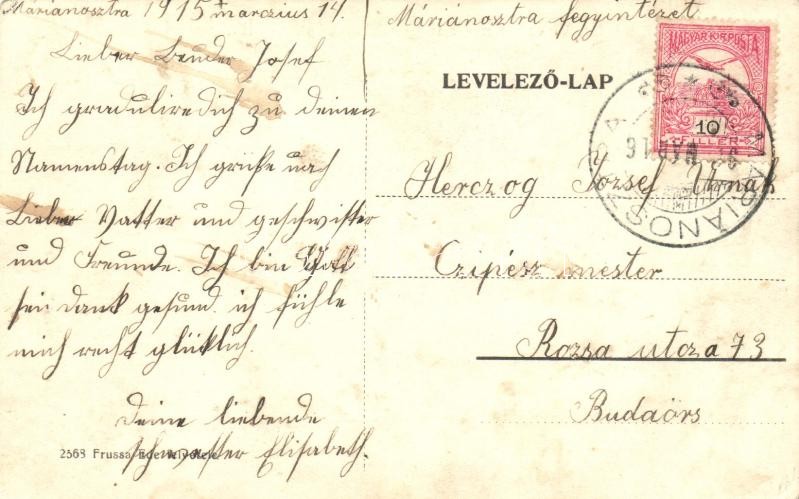 Máriánosztra 1915 márczius 14.
Lieber Bruder Josef
Ich graduliredich zu deinen
Namenstag. Ich grüße nach
Lieber Vatter und geschwister
und Freunde. Ich bin Gott
sei dank gesund ich fühle
mich recht glücklich.
Deine liebende
schwester Elisabeth.
2563 Frussa Ede
Máriánosztra fegyintézet
LEVELEZŐ-LAP
MAGYAR KIR. POSTA
10
FILLÉR
Herczog József Urnak
Czipész mester
Rozsa utcza 73
Budaörs